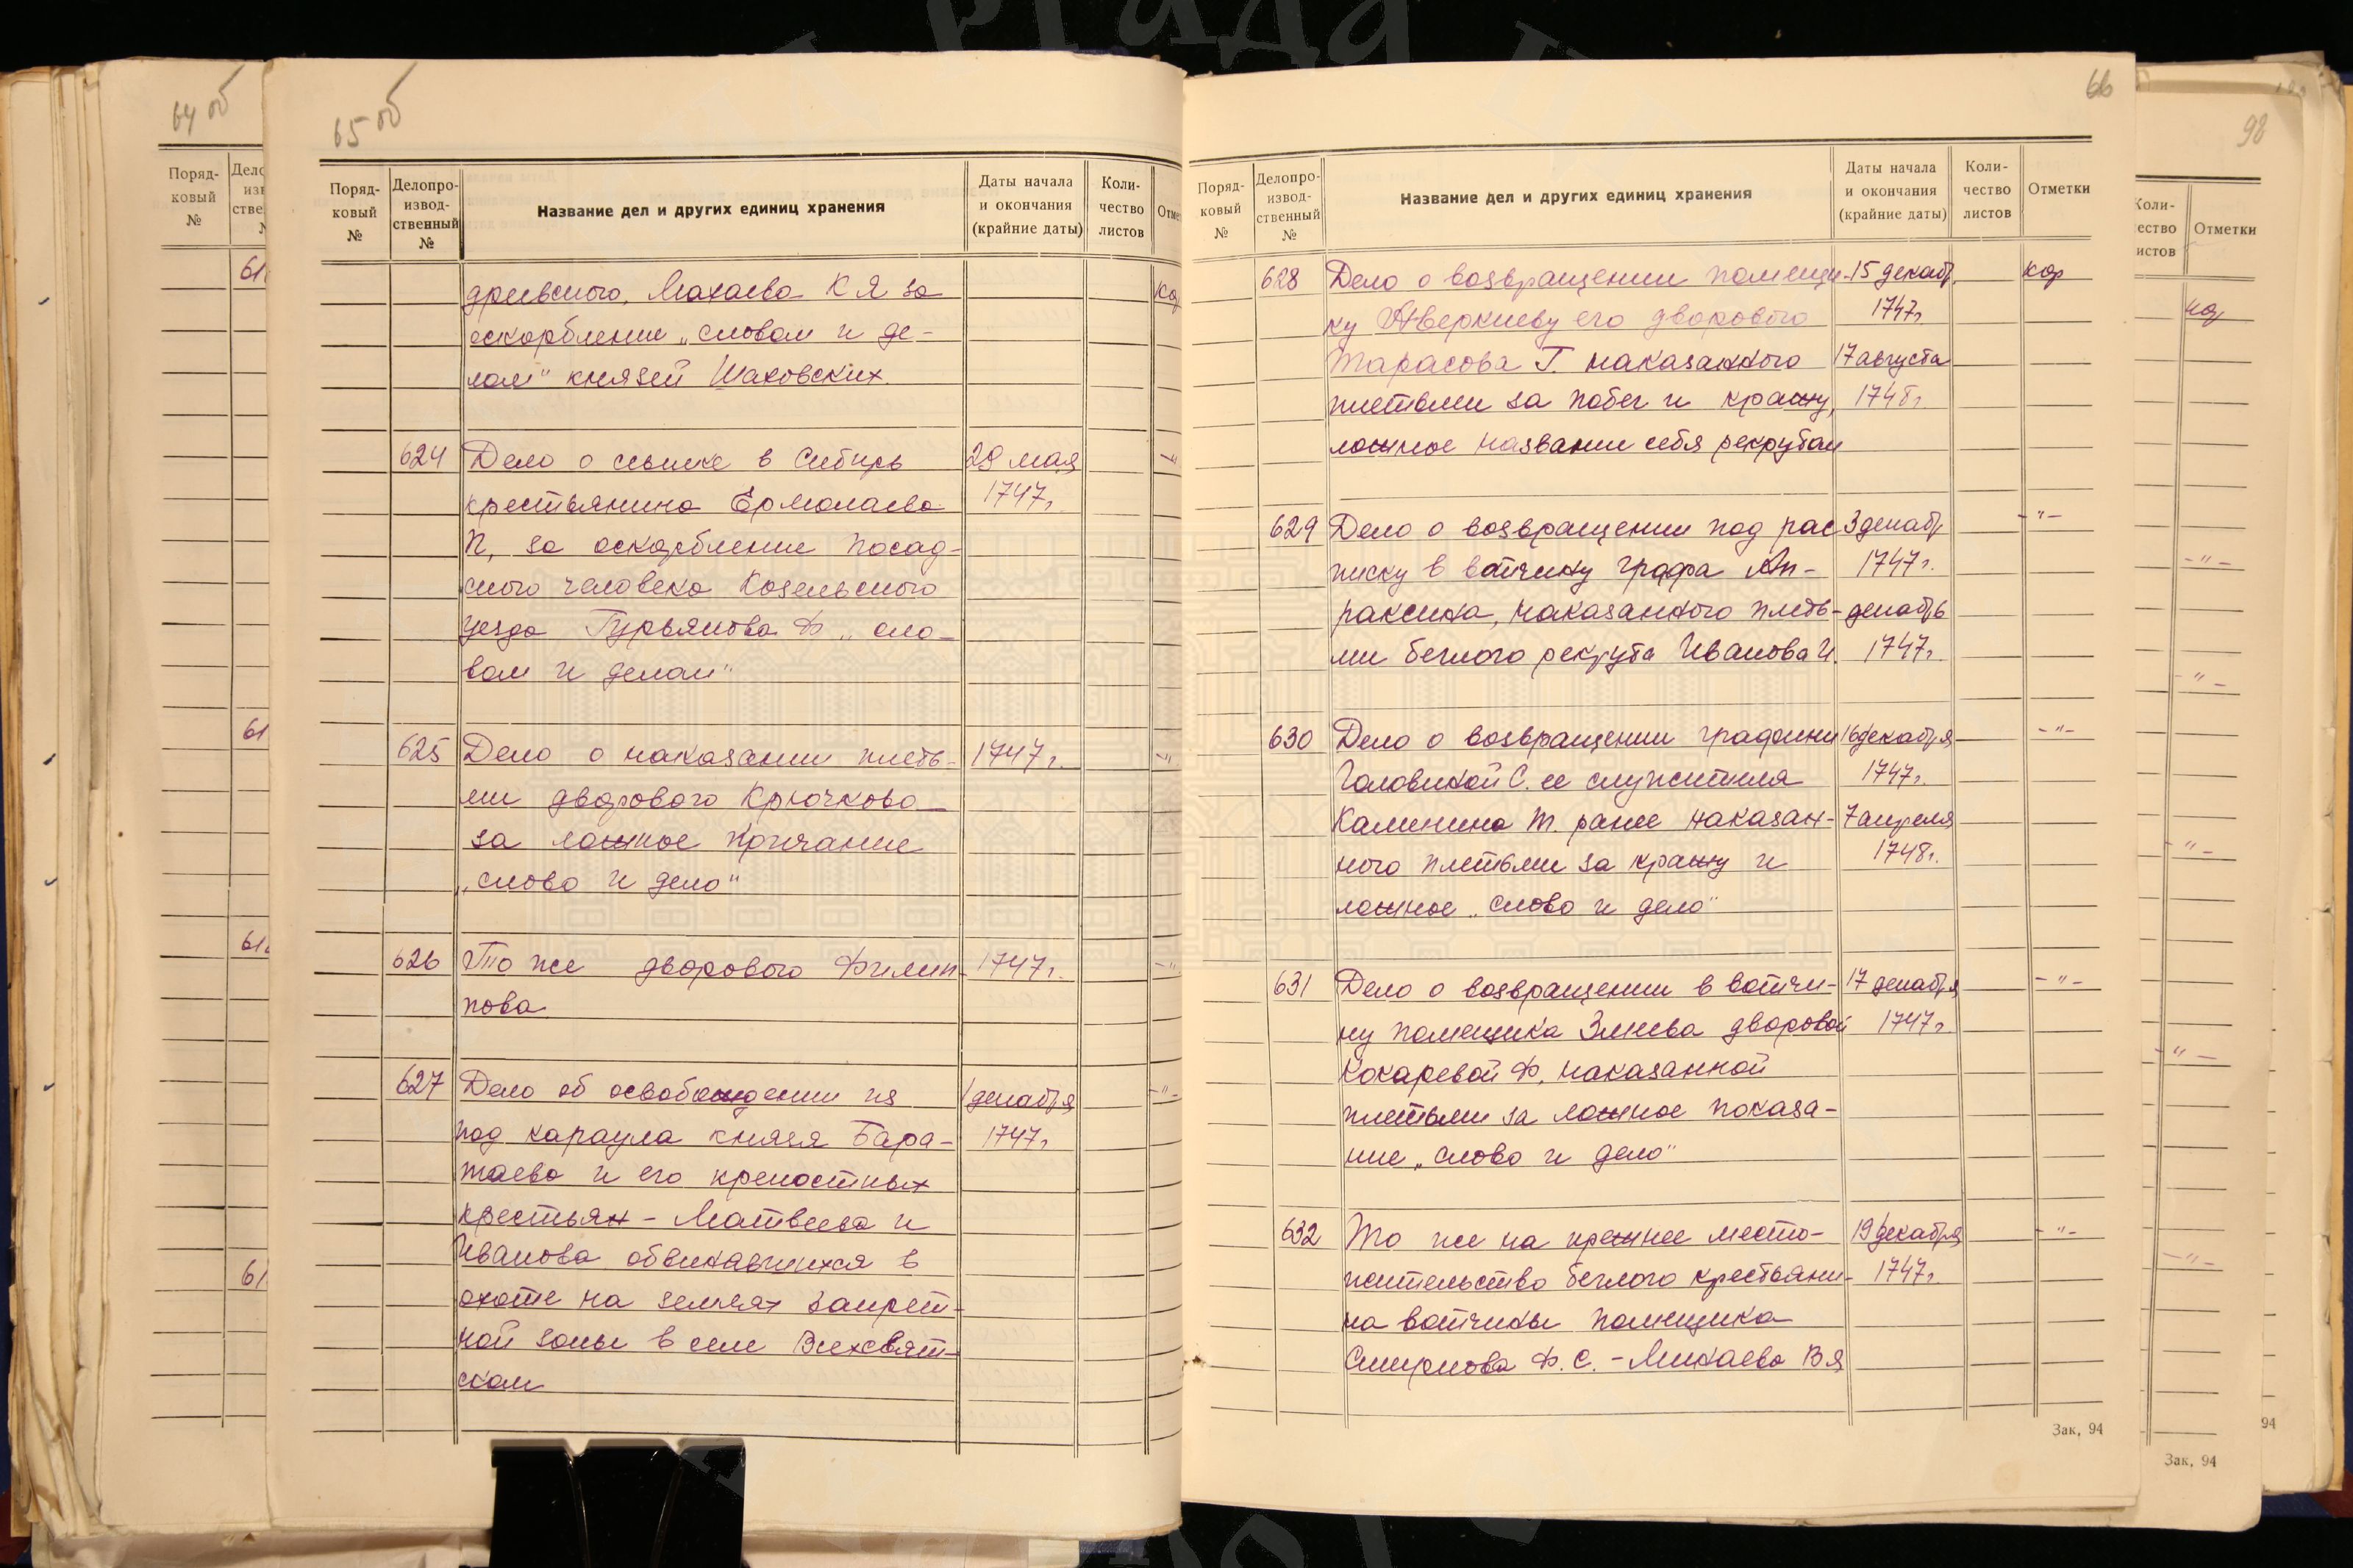 64 об
Поряд-
ковый
№
65 об
Поряд-
ковый
№
Делопро-
извод-
ственный
№
Название дел и других единиц хранения
Даты начала
и окончания
(крайние даты)
Коли-
чество
листов
древского, Махаева К Я за
оскорбление „словом и де-
лом" князей Шаховских
624 Дело о ссылке в Сибирь 29 мая
крестьянина Ермолаева 1747 г.
П, за оскорбление посад-
ского человека Козельского
уезда Гурьянова Ф „сло-
вом и делом"
625 Дело о наказании плеть- 1747 г.
ми дворового Крючкова
за ложное кричание
„слово и дело"
626 То же дворового Филип- 1747 г.
пова
627 Дело об освобождении из 1 декабря
под караула князя Бара- 1747 г.
таева и его крепостных
крестьян - Матвеева и
Иванова обвинявшихся в
охоте на землях запрет-
ной зоны в селе Всехсвят-
ском
66
Поряд-
ковый
№
Делопро-
извод-
ственный
№
Название дел и других единиц хранения
Даты начала
и окончания
(крайние даты)
Коли-
чество
листов
Отметки
628 Дело о возвращении помещи- 15 декабр кор
ку Аверкиеву его дворового 1747 г.
Тарасова Г. наказанного 17 августа
плетьми за побег и кражу, 1748 г.
ложное название себя рекрутом
629 Дело о возвращении под рас 3 декабр -"-
писку в вотчину графа Ап- 1747 г.
раксина, наказанного плеть- декабрь
ми беглого рекрута Иванова И. 1747 г.
630 Дело о возвращении графини 16 декабря -"-
Головиной С. ее служителя 1747 г.
Калинина Т. ранее наказан- 7 апреля
ного плетьми за кражу и 1748 г.
ложное „слово и дело"
631 Дело о возвращении в вотчи- 17 декабря -"-
ну помещика Змеева дворовой 1747 г.
Кокаревой Ф. наказанной
плетьми за ложное показа-
ние „слово и дело"
632 То же на прежнее место- 19 декабря -"-
жительство беглого крестьяни- 1747 г.
на вотчины помещика
Смирнова Ф. С. - Минаева В Я
Зак. 94
98
Отметки
Зак. 94
94